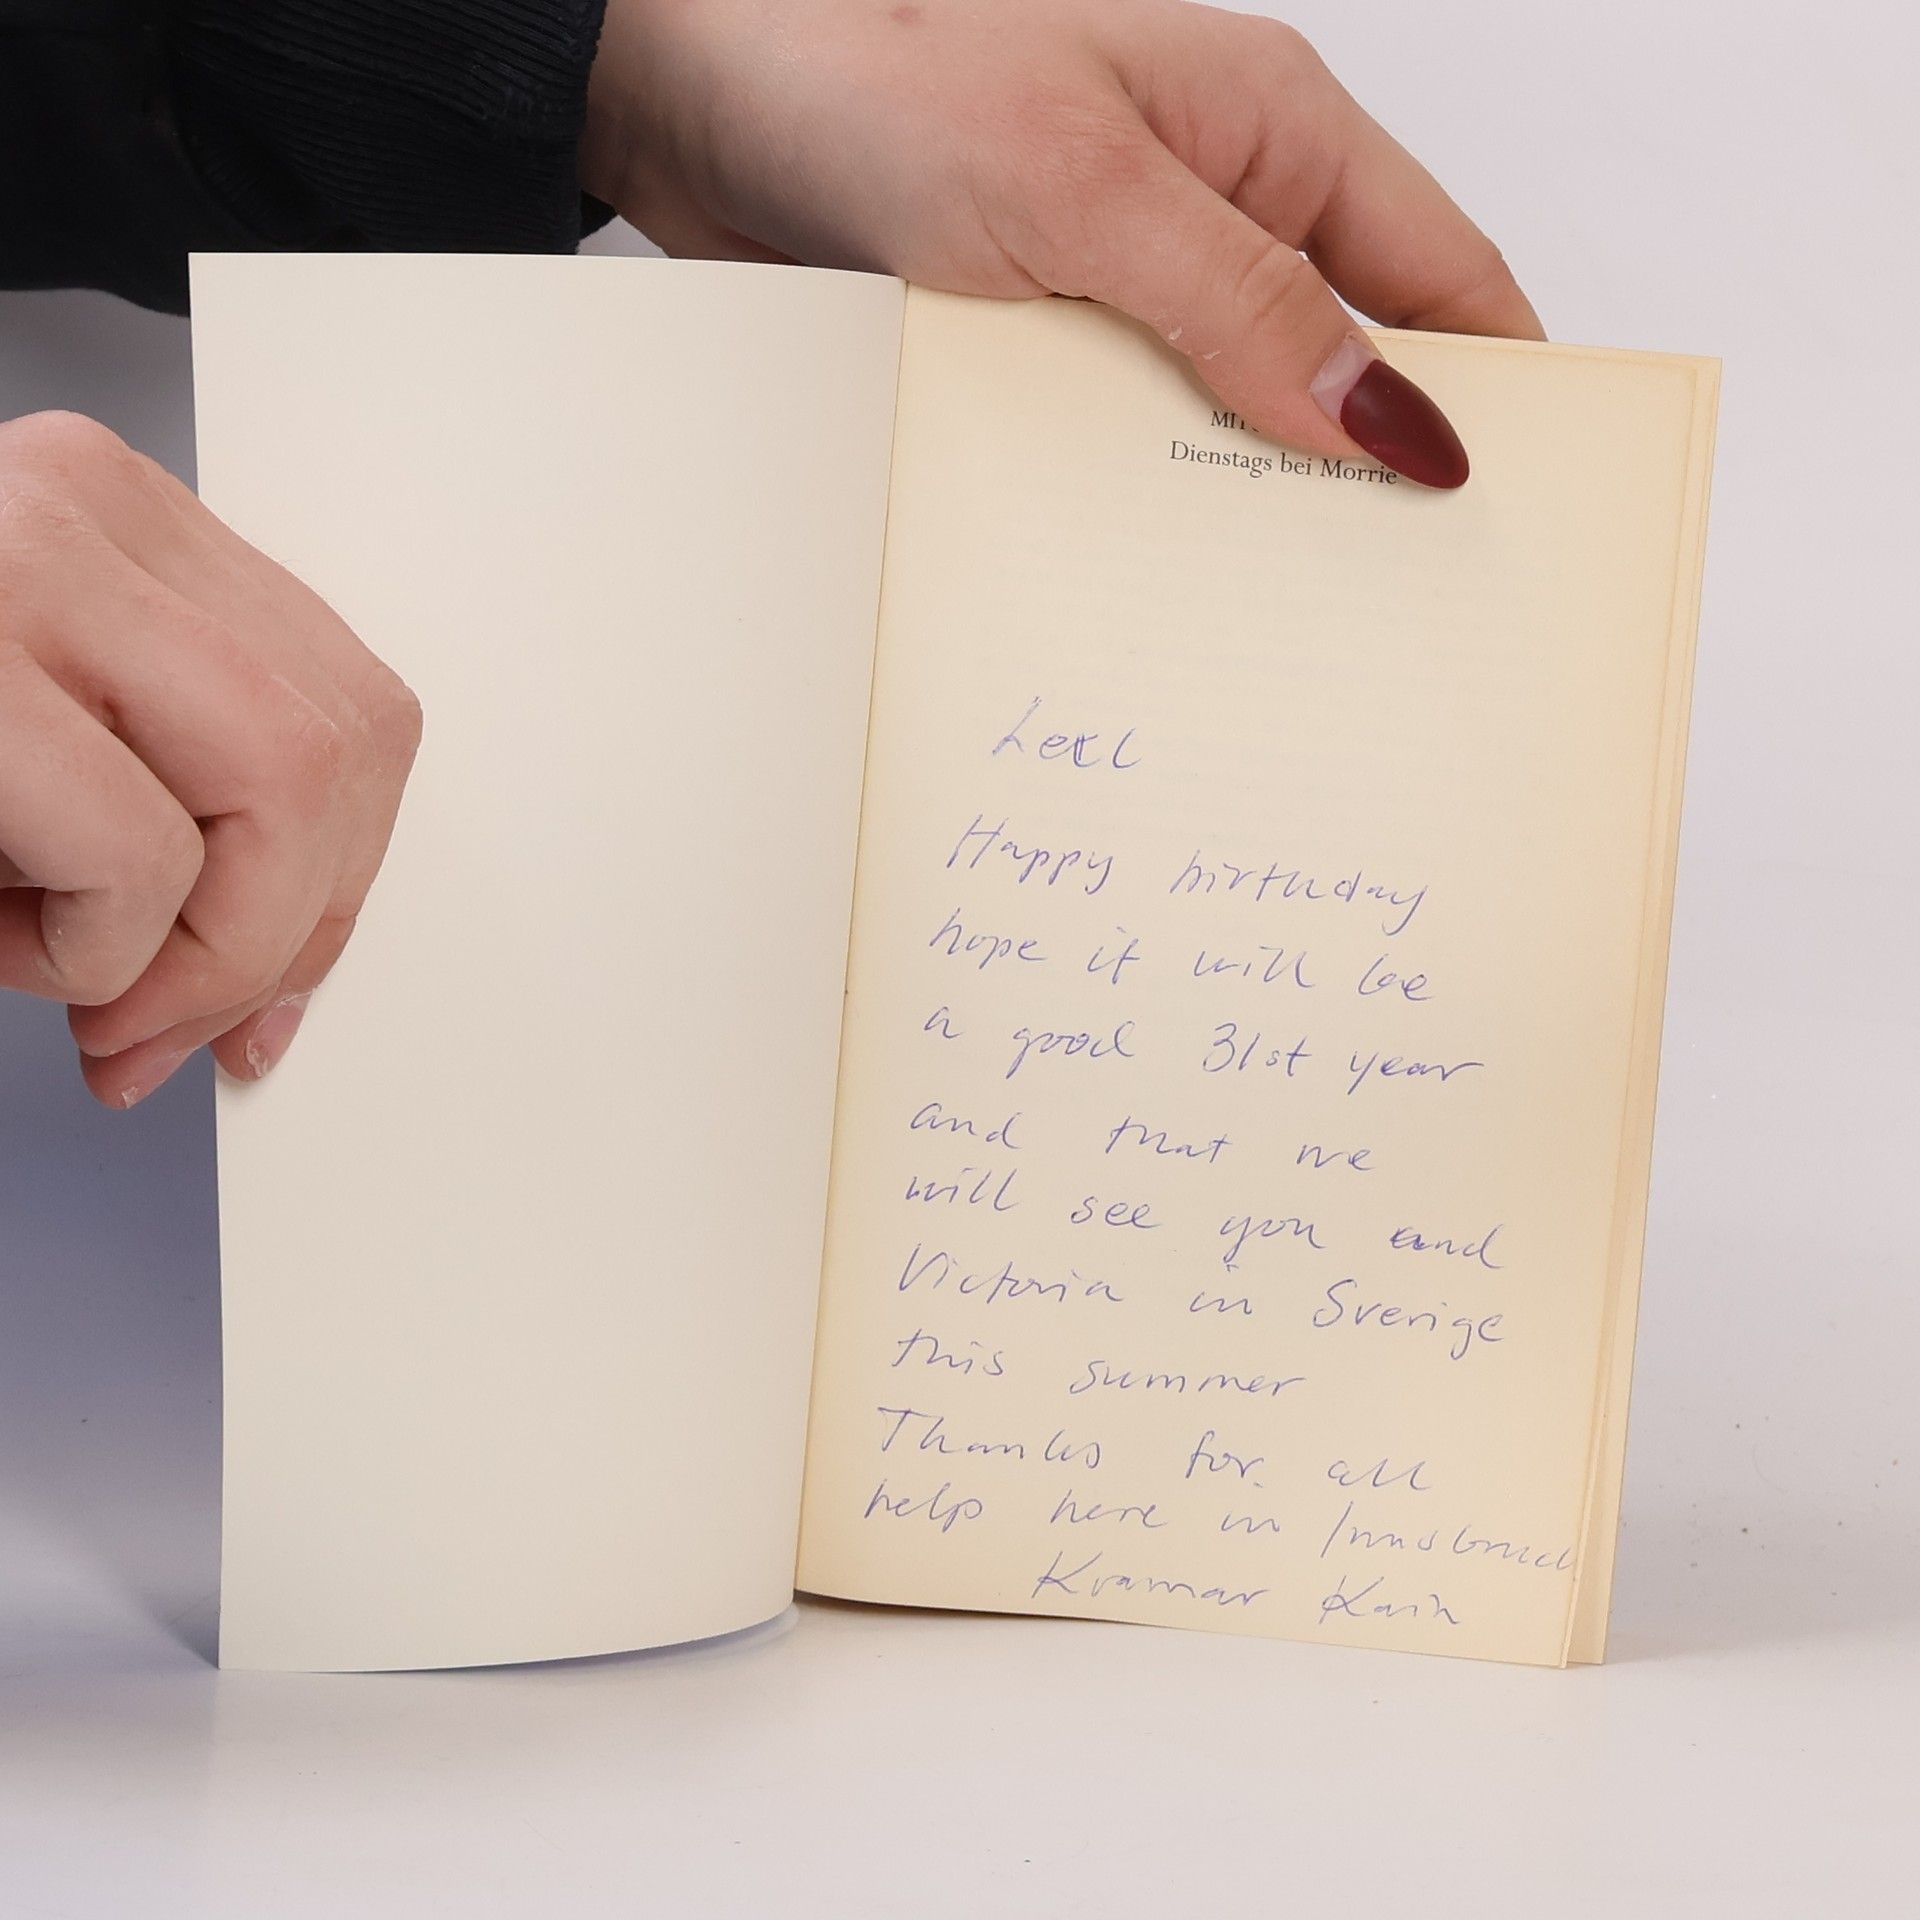 Dienstags bei Morrie
Happy birthday
hope it will be
a good 31st year
and that we
will see you and
Victoria in Sverige
this summer
Thanks for all
help here in Innsbruck
Kramar Karin